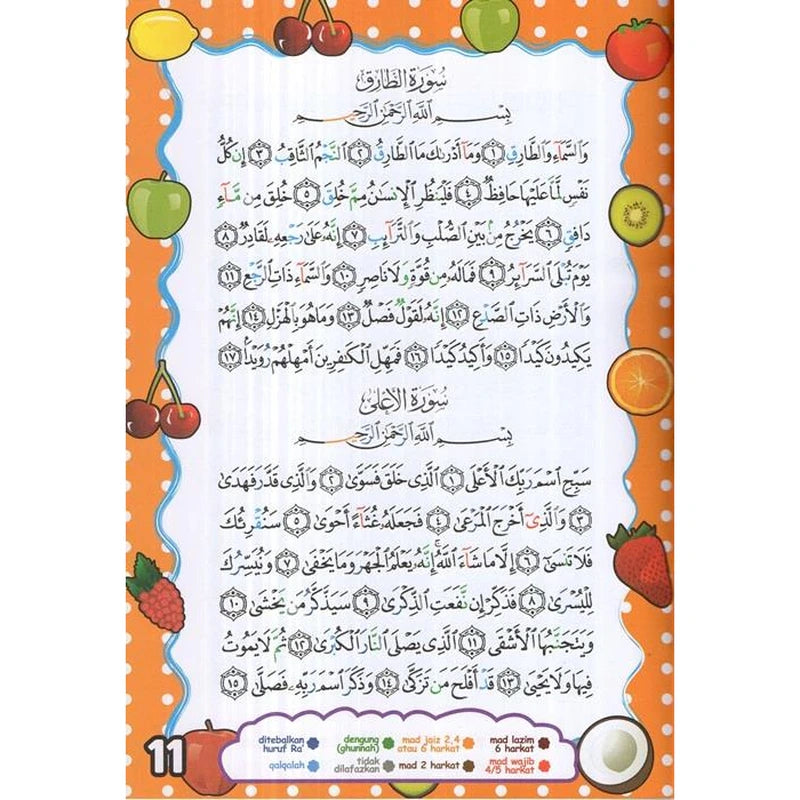 سُورَةُ الطَّارِقِ
بِسْمِ اللَّهِ الرَّحْمَٰنِ الرَّحِيمِ
وَالسَّمَاءِ وَالطَّارِقِ ۝١ وَمَا أَدْرَىٰكَ مَا الطَّارِقُ ۝٢ النَّجْمُ الثَّاقِبُ ۝٣ إِن كُلُّ
نَفْسٍ لَّمَّا عَلَيْهَا حَافِظٌ ۝٤ فَلْيَنظُرِ الْإِنسَٰنُ مِمَّ خُلِقَ ۝٥ خُلِقَ مِن مَّاءٍ
دَافِقٍ ۝٦ يَخْرُجُ مِنۢ بَيْنِ الصُّلْبِ وَالتَّرَائِبِ ۝٧ إِنَّهُۥ عَلَىٰ رَجْعِهِۦ لَقَادِرٌ ۝٨
يَوْمَ تُبْلَى السَّرَائِرُ ۝٩ فَمَا لَهُۥ مِن قُوَّةٍ وَلَا نَاصِرٍ ۝١٠ وَالسَّمَاءِ ذَاتِ الرَّجْعِ ۝١١
وَالْأَرْضِ ذَاتِ الصَّدْعِ ۝١٢ إِنَّهُۥ لَقَوْلٌ فَصْلٌ ۝١٣ وَمَا هُوَ بِالْهَزْلِ ۝١٤ إِنَّهُمْ
يَكِيدُونَ كَيْدًا ۝١٥ وَأَكِيدُ كَيْدًا ۝١٦ فَمَهِّلِ الْكَٰفِرِينَ أَمْهِلْهُمْ رُوَيْدًۢا ۝١٧
سُورَةُ الْأَعْلَىٰ
بِسْمِ اللَّهِ الرَّحْمَٰنِ الرَّحِيمِ
سَبِّحِ اسْمَ رَبِّكَ الْأَعْلَى ۝١ الَّذِى خَلَقَ فَسَوَّىٰ ۝٢ وَالَّذِى قَدَّرَ فَهَدَىٰ
۝٣ وَالَّذِىٓ أَخْرَجَ الْمَرْعَىٰ ۝٤ فَجَعَلَهُۥ غُثَاءً أَحْوَىٰ ۝٥ سَنُقْرِئُكَ
فَلَا تَنسَىٰٓ ۝٦ إِلَّا مَا شَاءَ اللَّهُ ۚ إِنَّهُۥ يَعْلَمُ الْجَهْرَ وَمَا يَخْفَىٰ ۝٧ وَنُيَسِّرُكَ
لِلْيُسْرَىٰ ۝٨ فَذَكِّرْ إِن نَّفَعَتِ الذِّكْرَىٰ ۝٩ سَيَذَّكَّرُ مَن يَخْشَىٰ ۝١٠
وَيَتَجَنَّبُهَا الْأَشْقَى ۝١١ الَّذِى يَصْلَى النَّارَ الْكُبْرَىٰ ۝١٢ ثُمَّ لَا يَمُوتُ
فِيهَا وَلَا يَحْيَىٰ ۝١٣ قَدْ أَفْلَحَ مَن تَزَكَّىٰ ۝١٤ وَذَكَرَ اسْمَ رَبِّهِۦ فَصَلَّىٰ ۝١٥
ditebalkan huruf Ra'
dengung (ghunnah)
mad jaiz 2,4 atau 6 harkat
mad lazim 6 harkat
qalqalah
tidak dilafazkan
mad 2 harkat
mad wajib 4/5 harkat
11